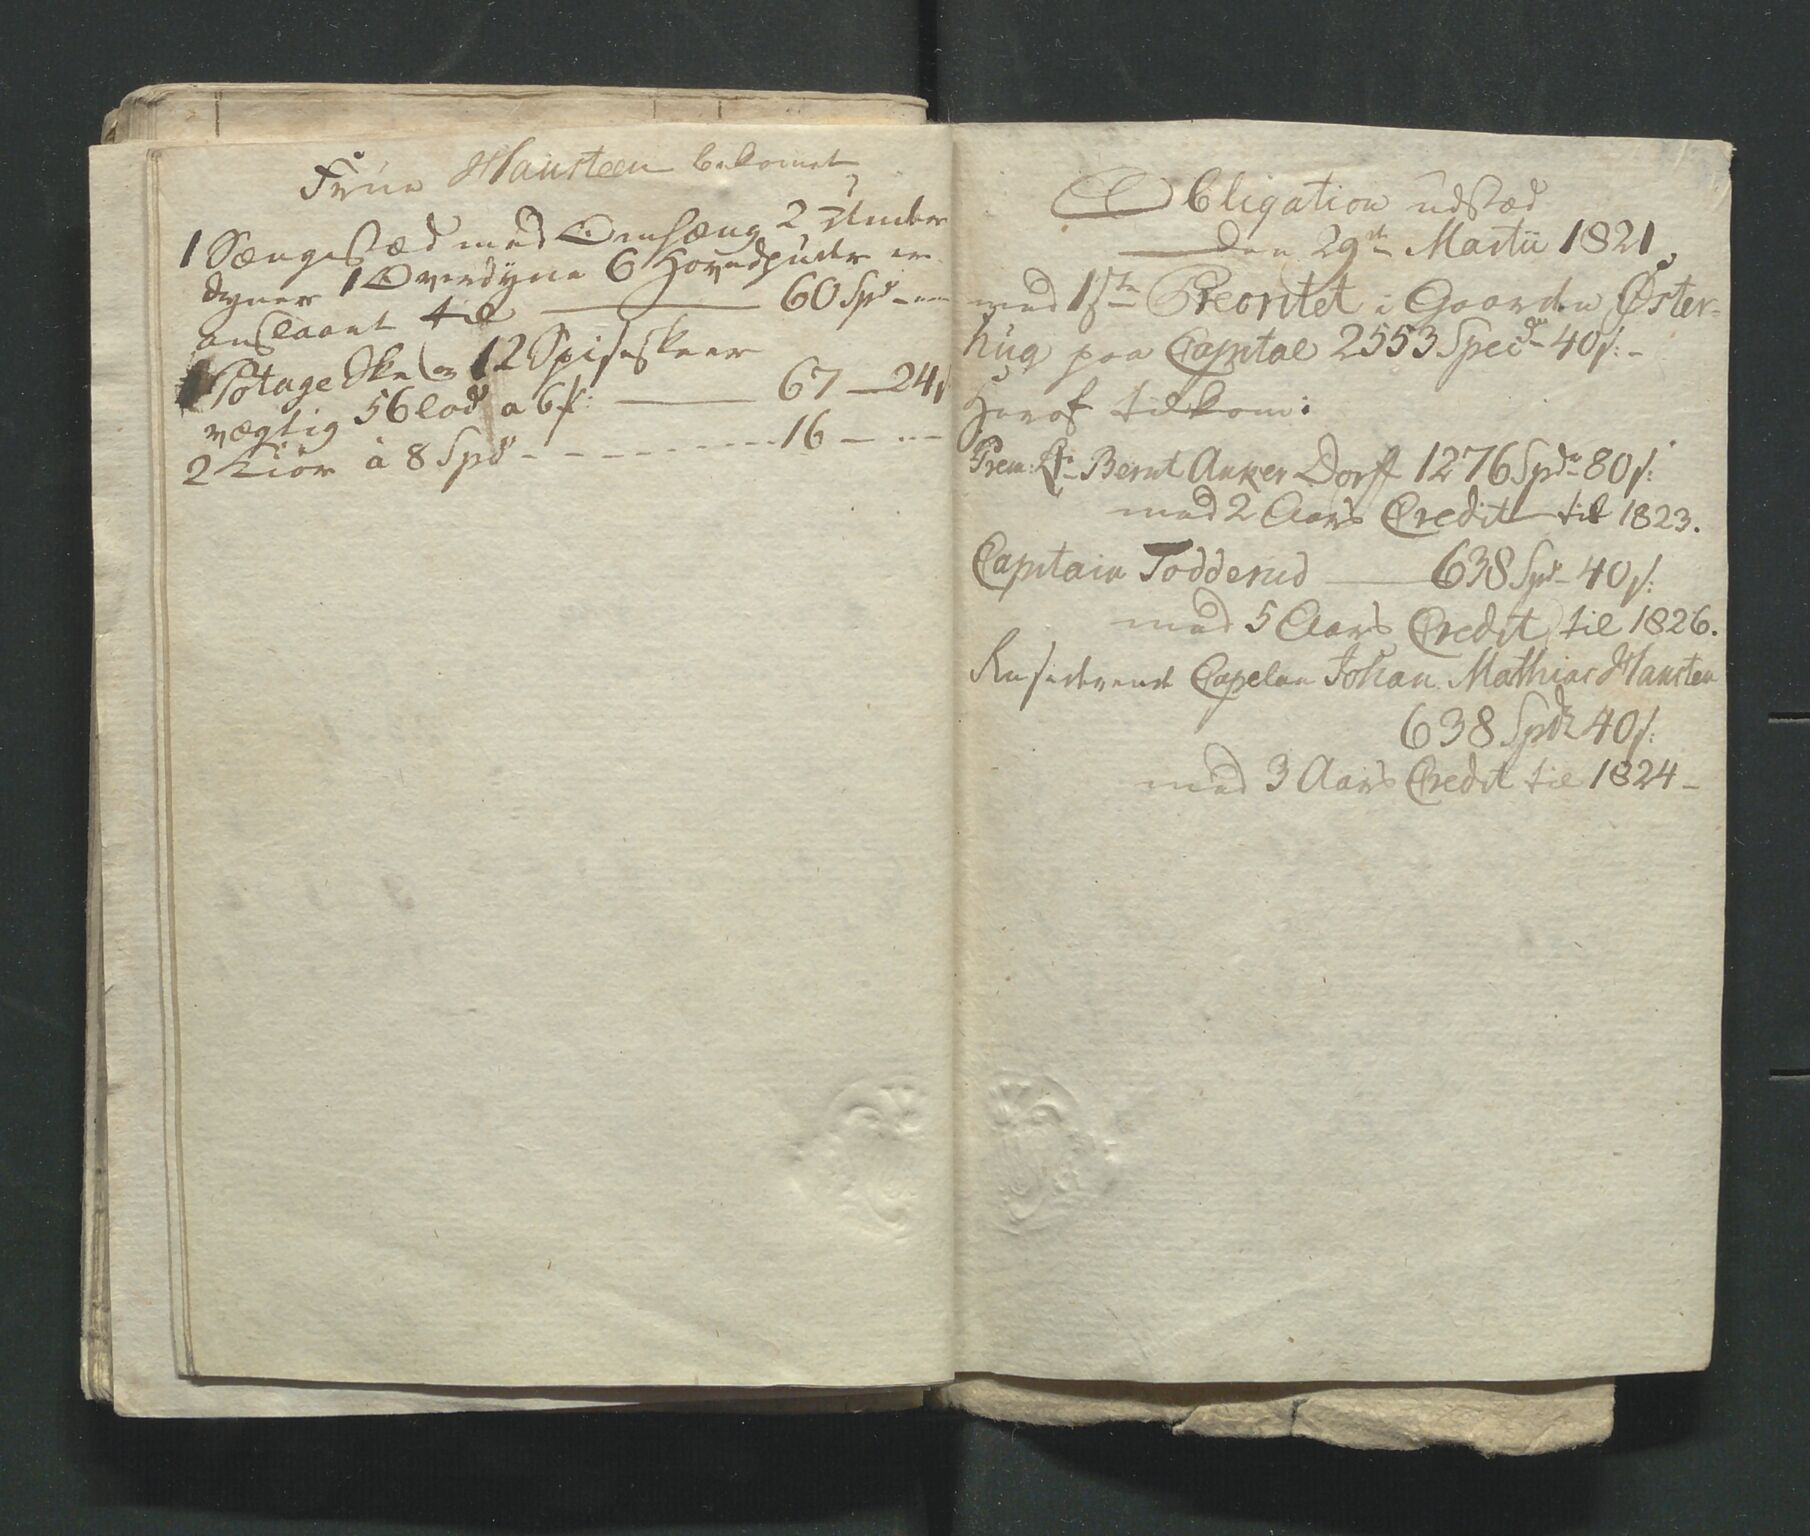 Frue Hansteen bekomet
1 Sængestæd med Omhæng 2 Under
dyner 1 Overdyne 6 Hovedpuder er
anslaaet til 60 Spd
1 Potage Ske og 12 Spiseskeer
vægtig 56 lod a 6 ß: 67 - 24 ß
2 Kiør à 8 Spd 16
Obligation udstæd
den 29de Martii 1821,
med 1ste Preoritet i Gaarden Øster-
hug paa Capital 2553 Specdr 40 ß: -
Heraf tilkom:
Prem: Lt. Bernt Anker Dorff 1276 Spdr 80 ß:
med 2 Aars Credit til 1823.
Capitain Todderud 638 Spdr 40 ß:
med 5 Aars Credit til 1826.
Residerende Capelan Johan Mathias Hansten
638 Spdr 40 ß:
med 3 Aars Credit til 1824 -